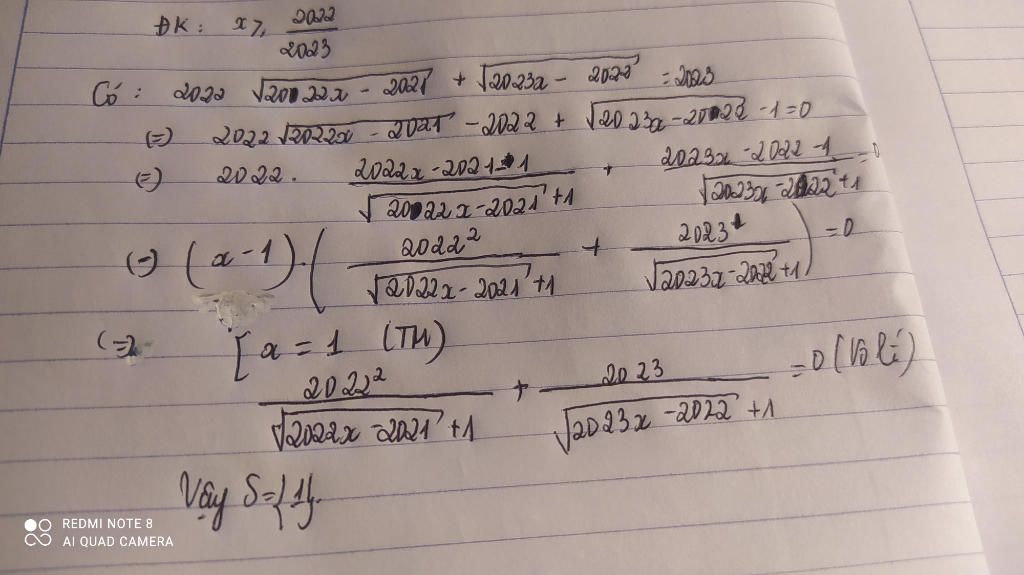 ĐK: x ≥ 2022/2023
Có: 2022 √(2022x - 2021) + √(2023x - 2022) = 2023
(=) 2022 √(2022x - 2021) - 2022 + √(2023x - 2022) - 1 = 0
(=) 2022 . (2022x - 2021 - 1)/(√(2022x - 2021) + 1) + (2023x - 2022 - 1)/(√(2023x - 2022) + 1) = 0
(=) (x - 1) . (2022²/(√(2022x - 2021) + 1) + 2023/(√(2023x - 2022) + 1)) = 0
(=) [ x = 1 (TM)
2022²/(√(2022x - 2021) + 1) + 2023/(√(2023x - 2022) + 1) = 0 (Vô lí)
Vậy S = {1}.
REDMI NOTE 8
AI QUAD CAMERA